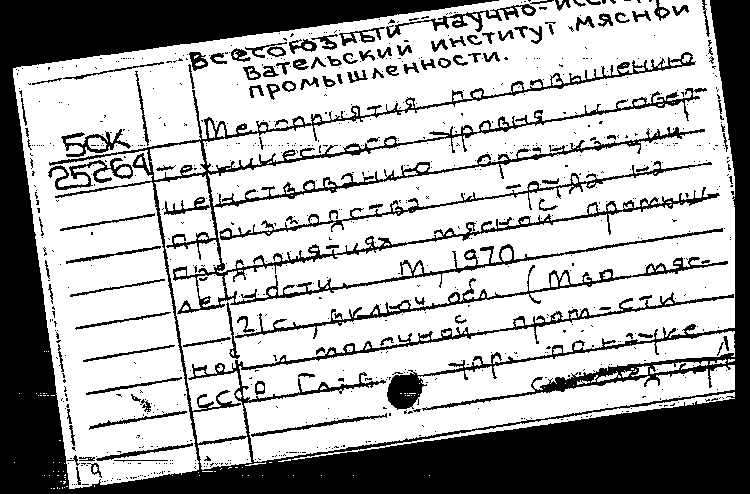 Всесоюзный научно-исследо-
вательский институт мясной
промышленности.
50К
25264
Мероприятия по повышению
технического уровня и совер-
шенствованию организации
производства и труда на
предприятиях мясной промыш-
ленности. М., 1970.
21 с., включ. обл. (М-во мяс-
ной и молочной пром-сти
СССР. Глав. упр. по науке
след. карт
19